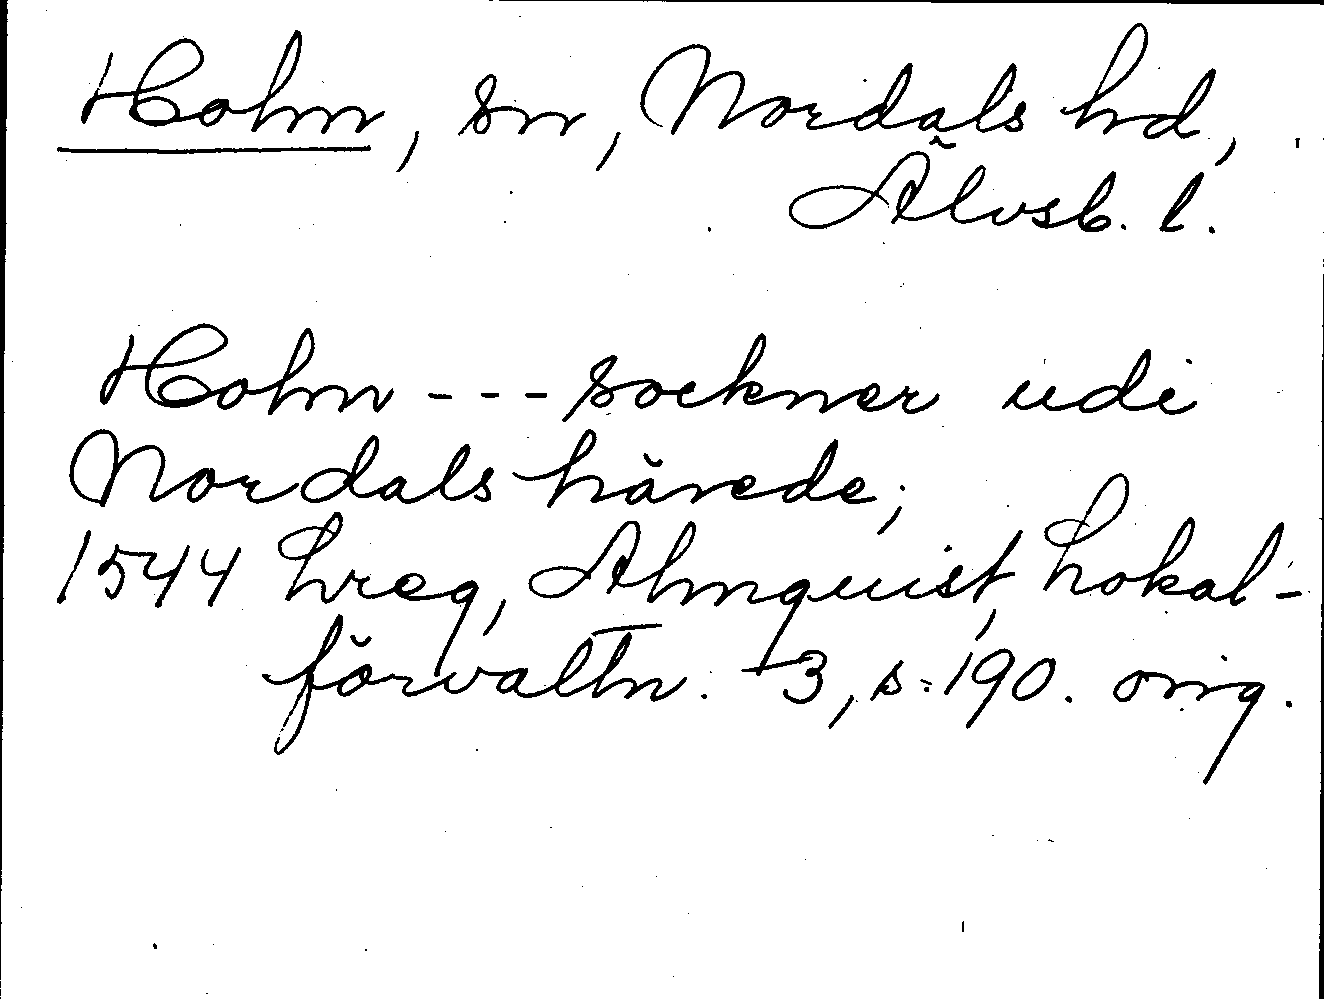 Hohn, sn, Nordals hd,
Älvsb. l.
Hohn --- sockner udi
Nordals härede;
1544 Lreg, Almquist, Lokal-
förvaltn. 3, s. 190. orig.